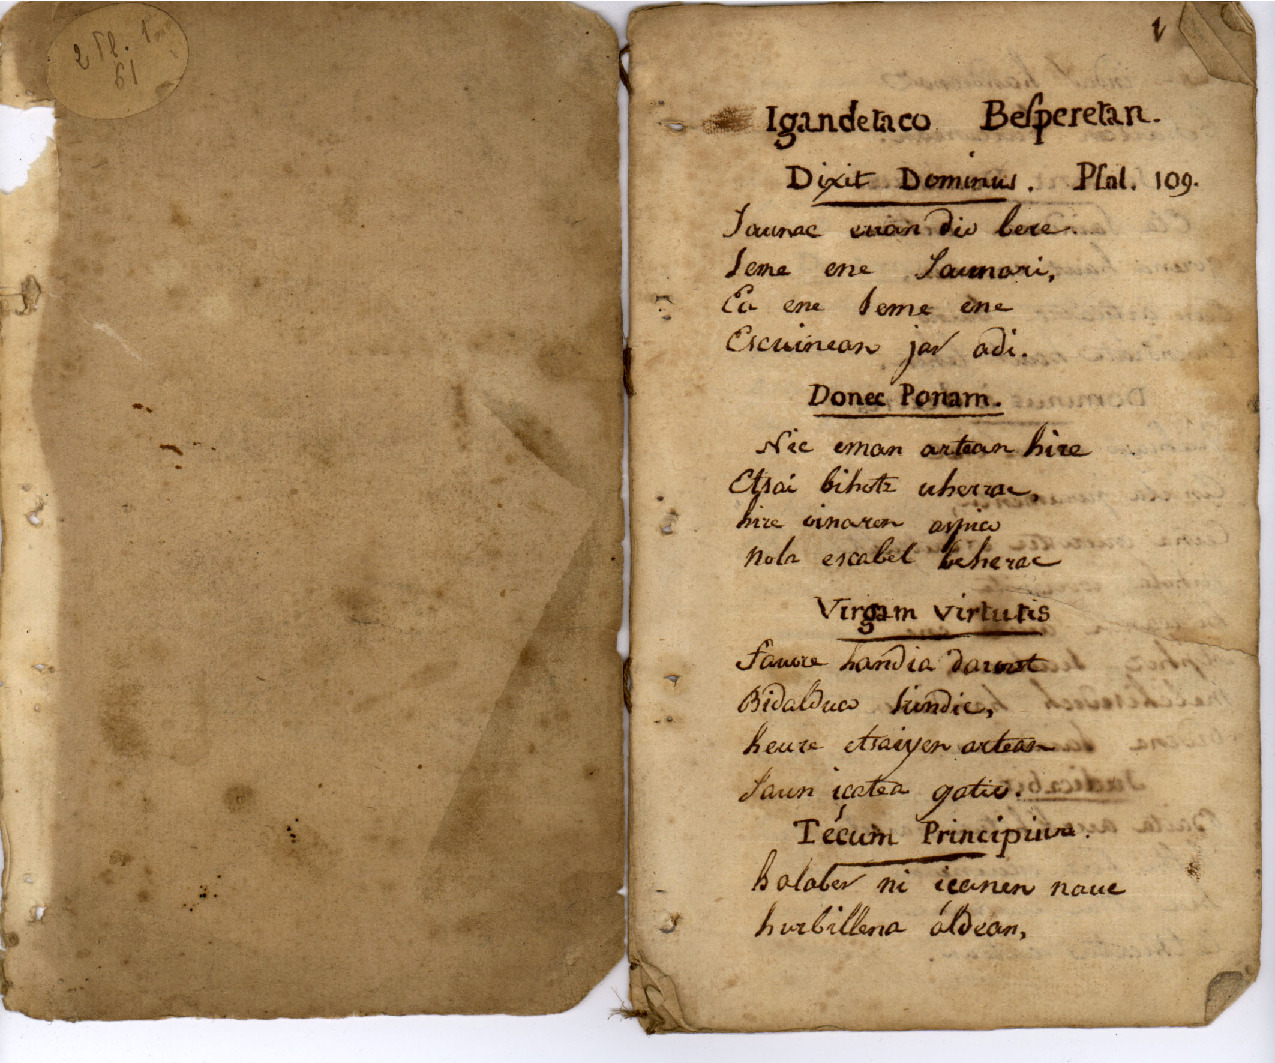 1
Igandetaco Besperetan.
Dixit Dominus. Psal. 109.
Jaunac erran dio bere
Seme ene Jaunari,
Ea ene Seme ene
Escuinean jar adi.
Donec Ponam.
Nic eman artean hire
Etsai bihotz uherrac,
hire oinaren azpico
nola escabel beherac
Virgam virtutis
Favore handia darot
Bidalduco Sindic,
heure etsaiyen artean
Jaun içatea gatic.
Técum Principium.
halaber ni içanen nauc
hurbillena áldean,